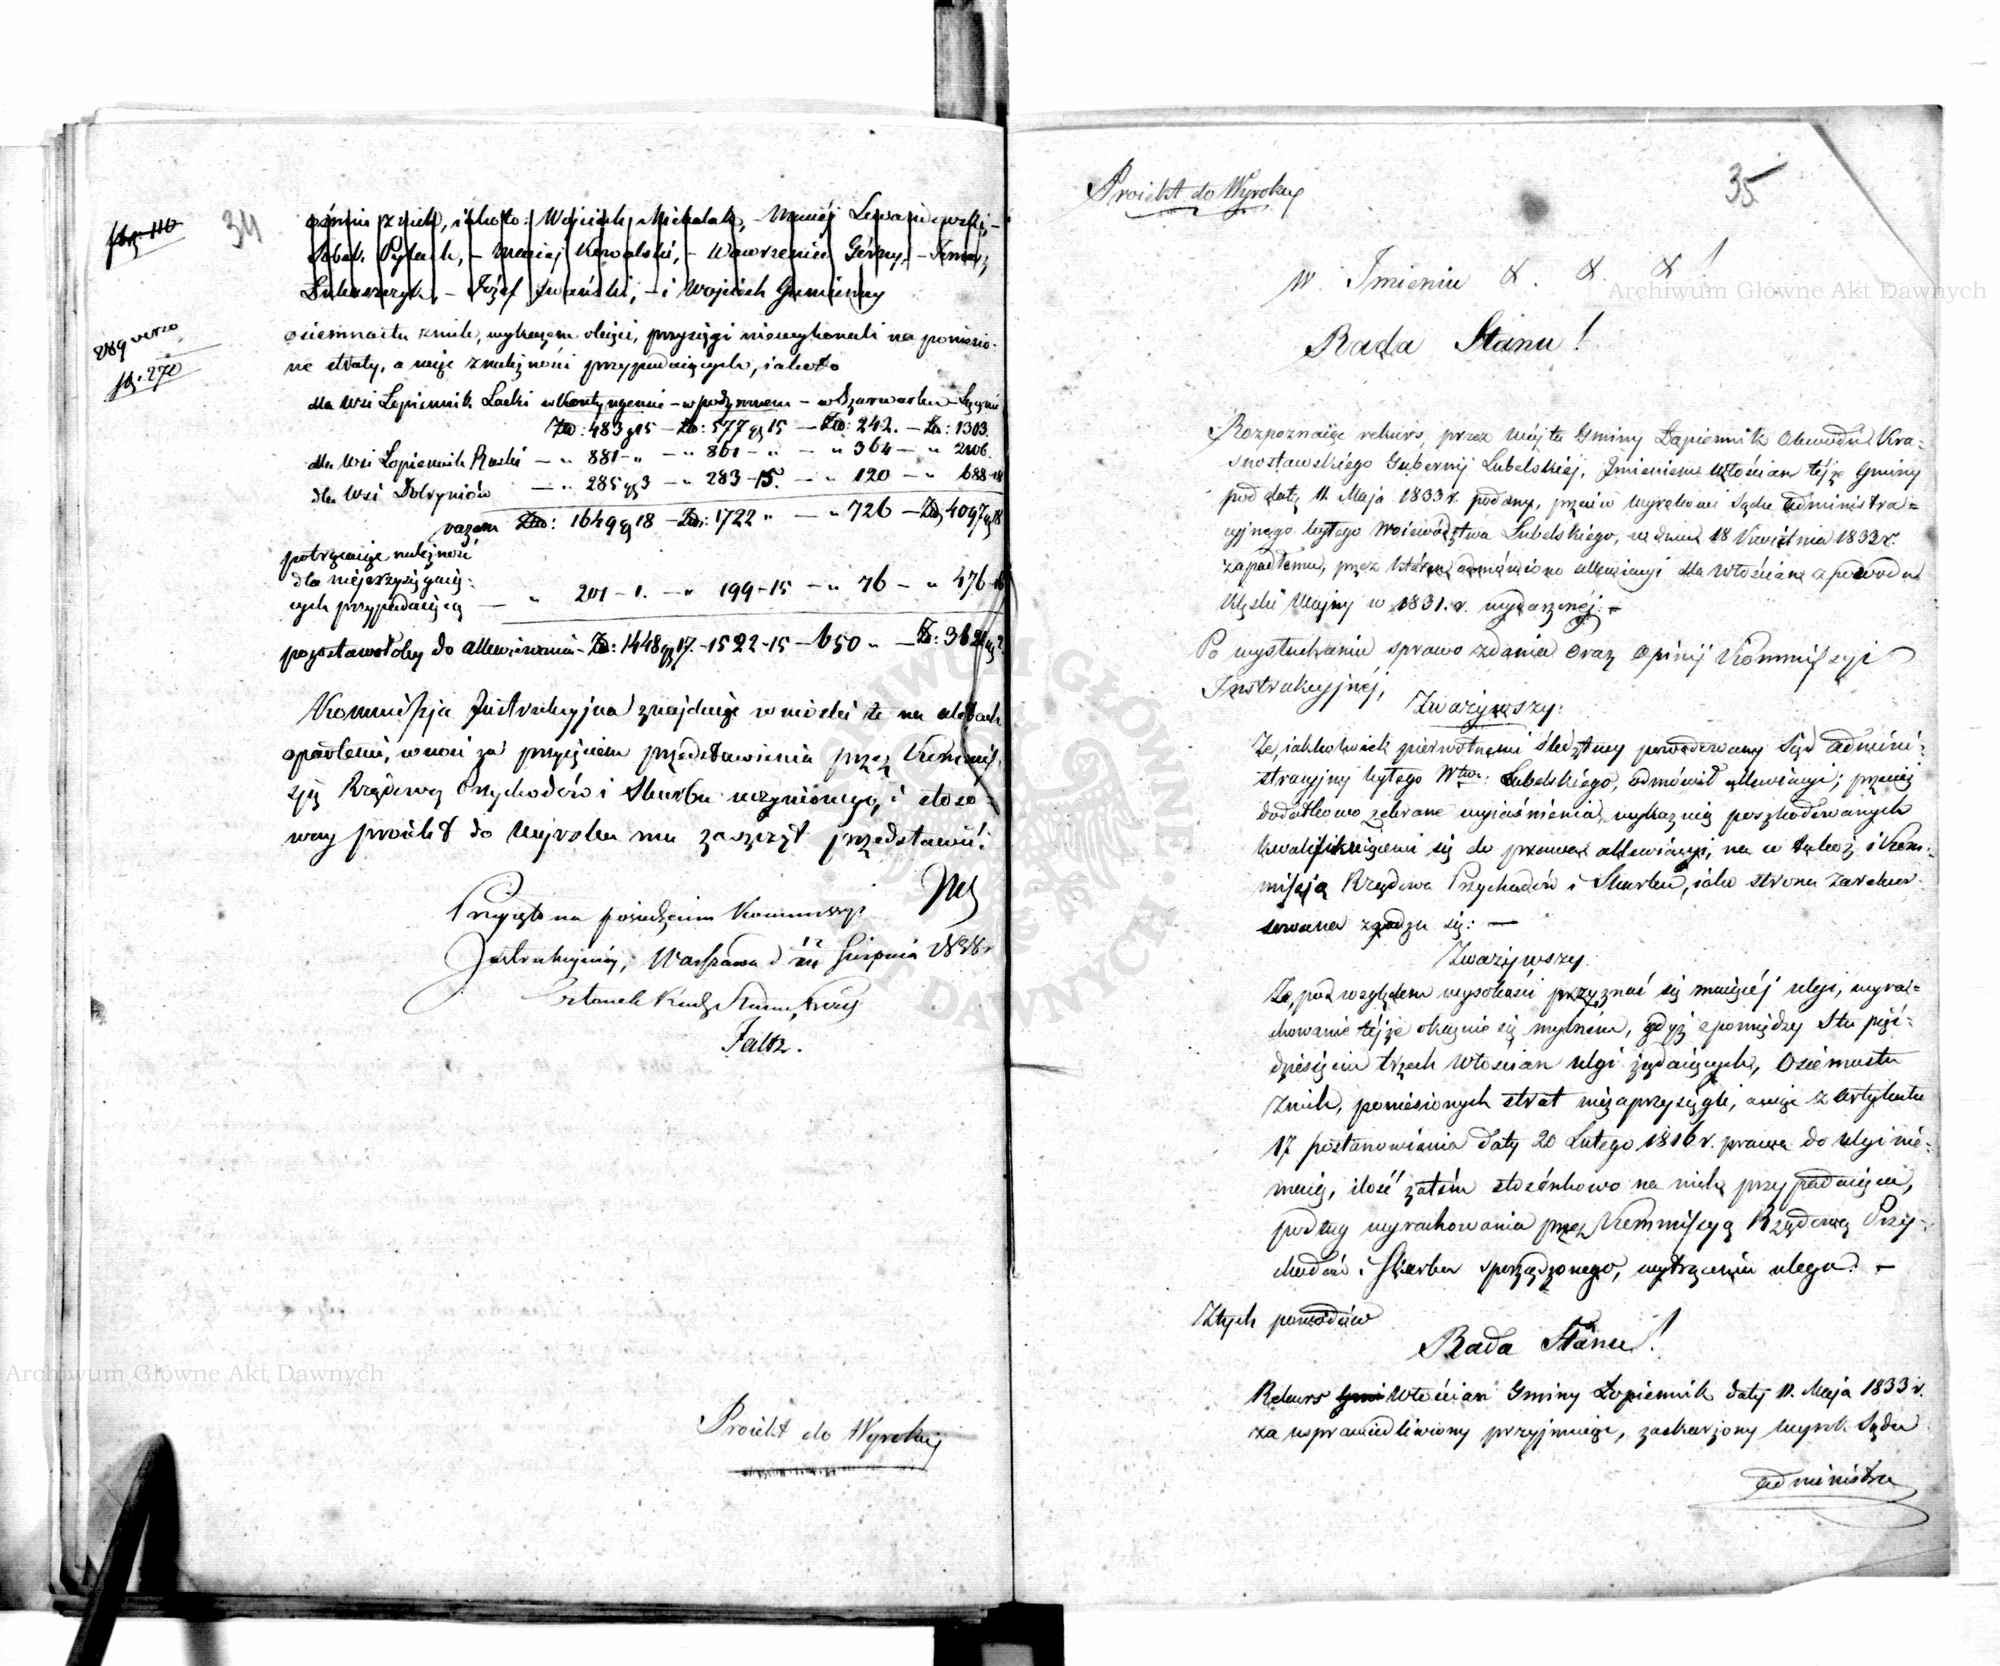 str. 110
34
ośmiu z nich, iakoto: Wojciech Michalak, – Maciéj Lewandowski, –
Sobek Pytlach, – Maciej Kowalski, – Wawrzeniec Górny, – Tomasz
Łukaszczyk, – Józef Iwański, – i Wojciech Gumienny
289 verso
str. 270
osiemnastu z nich, wykazem objęci, przysięgi niewykonali na poniesio-
ne straty, a więc z należności przypadaiących, iakoto
dla Wsi Łopiennik Lacki w kontyngensie – w podymnem – w Szarwarku – Łącznie
Złp: 483 gr 15 – Złp: 577 gr 15 – Złp: 242. – Złp: 1303.
dla Wsi Łopiennik Ruski – „ 881 – „ – „ 861 – „ – „ 364 – „ 2106.
dla Wsi Dobryniów – „ 285 gr 3 – „ 283 – 15. – „ 120 – „ 688 – 18
razem Złp: 1649 gr 18 – Złp: 1722 „ – „ 726 – Złp 4097 gr 18
potrącaiąc należność
dla nieprzysięgaią-
cych przypadaiącą – „ 201 – 1. – „ 199 – 15 – „ 76 – „ 476 – 16
pozostawałoby do allewiowania – Złp: 1448 gr 17. – 1522 – 15 – 650 „ – Złp: 3621 gr 2
Kommissja Instrukcyjna znajduiąc wnioski te na aktach
opartemi, wnosi za przyjęciem przedstawienia przez Kommis-
sję Rządową Przychodów i Skarbu uczynionego, i stoso-
wny proiekt do Wyroku ma zaszczyt przedstawić:
Przyięto na posiedzeniu Kommissyi
Instrukcyjnéj, Warszawa d 12 Sierpnia 1838 r
Członek Rady Stanu, Prezyd
Faltz.
Proiekt do Wyroku
Archiwum Główne Akt Dawnych
Proiekt do Wyroku
35
W Imieniu &. &. &!
Archiwum Główne Akt Dawnych
Rada Stanu!
Rozpoznaiąc rekurs, przez Wójta Gminy Łopiennik Obwodu Kra-
snostawskiego Gubernij Lubelskiéj, Imieniem Włościan téjże Gminy
pod datą 11. Maja 1833 r. podany, przeciw wyrokowi Sądu administra-
cyjnego byłego Województwa Lubelskiego, w dniu 18 Kwietnia 1833 r.
zapadłemu, przez które odmówiono allewiacyi dla Włościan z powodu
klęski Wojny w 1831. r. wydarzonéj: –
Po wysłuchaniu sprawozdania oraz Opinij Kommissyi
Instrukcyjnéj,
Zważywszy:
Że, iakkolwiek pierwotnemi śledztwy powodowany Sąd admini-
stracyjny byłego Wtwa: Lubelskiego, odmówił allewiacyi; przecież
dodatkowo zebrane wyiaśnienia, wykazują poszkodowanych
kwalifikuiącemi się do prawa allewiacyi, na co także i Kom-
missja Rządowa Przychodów i Skarbu, iako strona zarekur-
sowana zgadza się: –
Zważywszy
Że, pod względem wysokości przyznać się maiącéj ulgi, wyra-
chowanie téjże okazuie się mylném, gdyż z pomiędzy Stu pięć-
dziesięciu trzech Włościan ulgi żądaiących, Osiemnastu
z nich, poniesionych strat niezaprzysięgli, a więc z artykułu
17 postanowienia daty 20 Lutego 1816 r. prawa do ulgi nie-
maią, ilość zatém stosónkowo na nich przypadaiąca,
podług wyrachowania przez Kommissyą Rządową Przy-
chodów i Skarbu sporządzonego, wytrąceniu ulega: –
Z tych powodów
Rada Stanu!
Rekurs Włościan Gminy Łopiennik daty 11. Maja 1833 r.
za usprawiedliwiony przyjmuiąc, zaskarżony wyrok Sądu
administra
ARCHIWUM GŁÓWNE AKT DAWNYCH